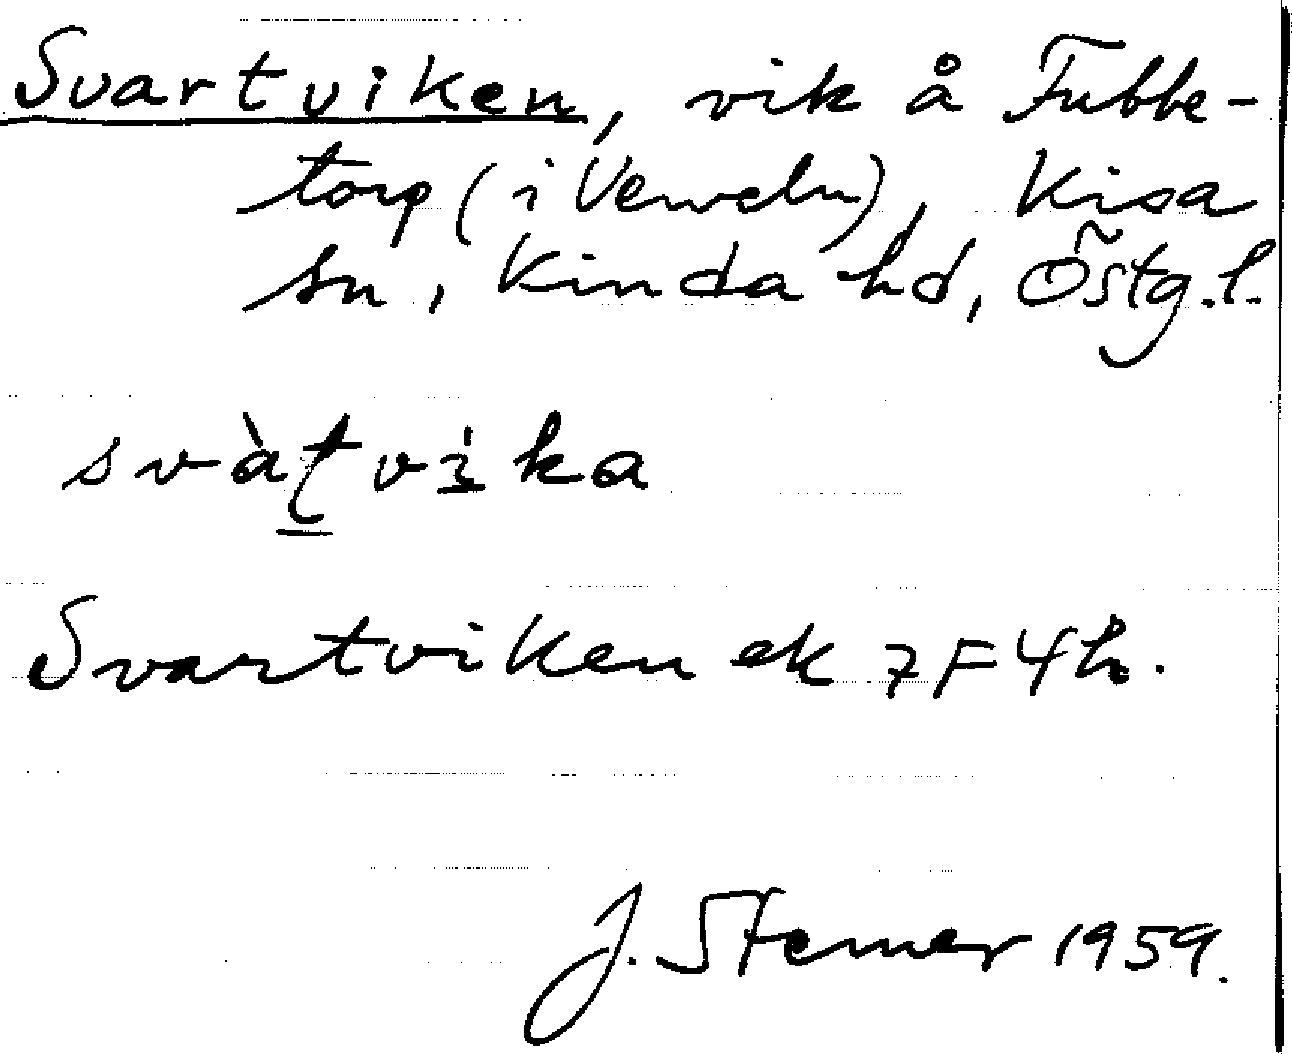 Svartviken, vik å Fubbe-
torp (i Verveln), Kisa
sn, Kinda hd, Östg.l.
svàt̲vìka
Svartviken ek 7F4h.
J. Sterner 1959.